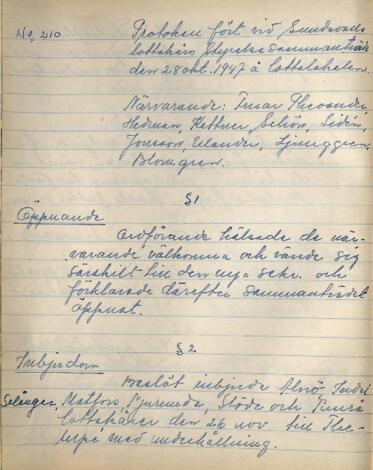 No. 210
Protokoll fört vid Sundsvalls
lottakårs styrelsesammanträde
den 28 okt. 1947 å lottalokalen.
Närvarande: Fruar Theander,
Hedman, Kettner, Schön, Sidén,
Jonsson, Elander, Ljunggren,
Blomgren.
§ 1
Öppnande
Ordförande hälsade de när-
varande välkomna och vände sig
särskilt till den nya sekr. och
förklarade därefter sammanträdet
öppnat.
§ 2.
Inbjudan
Beslöt inbjuda Alnö,
Selånger, Matfors, Njurunda, Stöde och Timrå
lottakårer den 26 nov till The-
supé med underhållning.